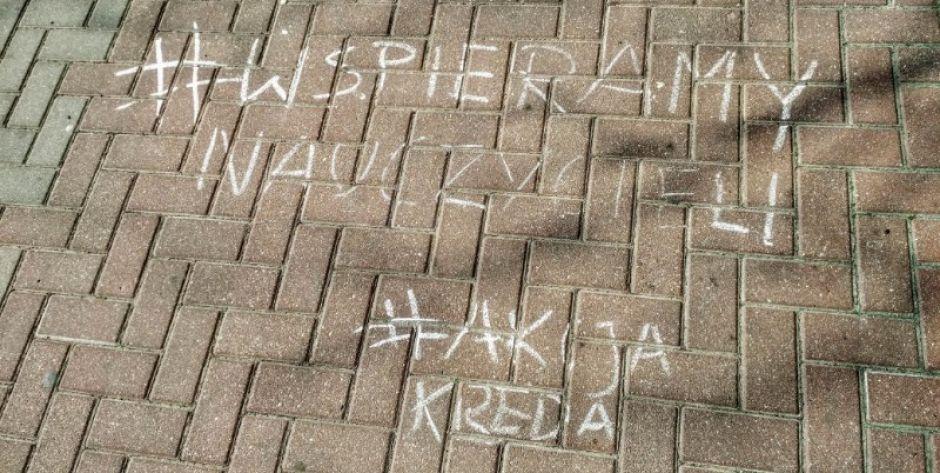 #WSPIERAMY
NAUCZYCIELI
#AKCJA
KREDA